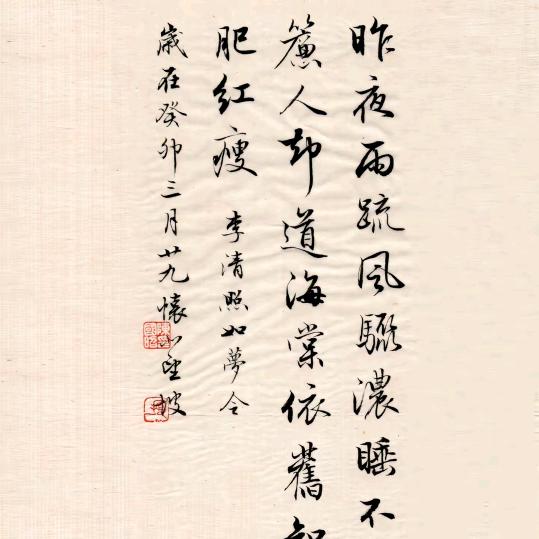 昨夜雨疏风骤濃睡不
簾人却道海棠依舊知
肥红瘦 李清照如夢令
歲在癸卯三月廿九懷